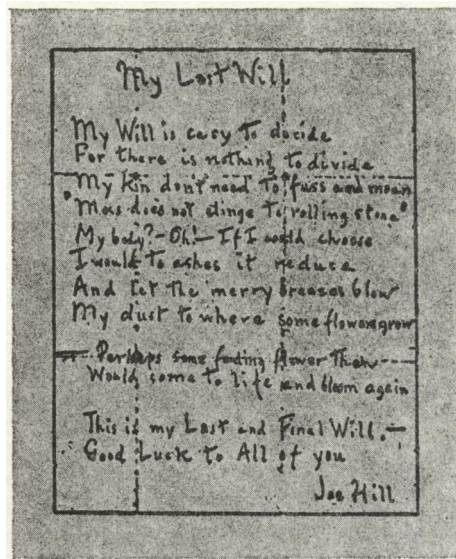 My Last Will
My Will is easy to decide
For there is nothing to divide
My kin don't need to fuss and moan
"Moss does not clinge to rolling stone"
My body? - Oh! - If I could choose
I would to ashes it reduce
And let the merry breezes blow
My dust to where some flowers grow
Perhaps some fading flower then
Would come to life and bloom again
This is my Last and Final Will. -
Good Luck to All of you
Joe Hill